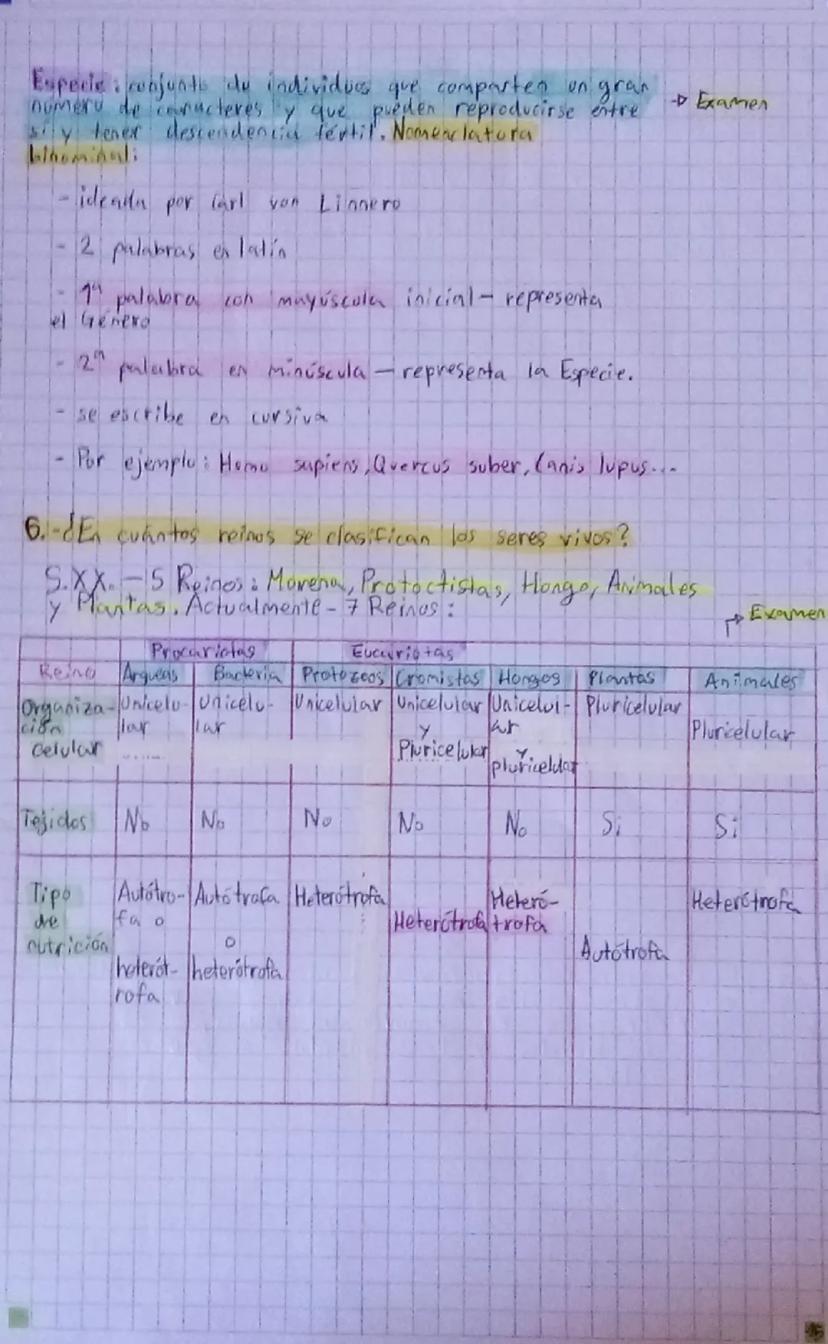 Especie: conjunto de individuos que comparten un gran
número de caracteres y que pueden reproducirse entre → Examen
sí y tener descendencia fértil. Nomenclatura
binominal:
- ideada por Carl von Linnero
- 2 palabras en latín
- 1ª palabra con mayúscula inicial - representa
el Género
- 2ª palabra en minúscula - representa la Especie.
- se escribe en cursiva
- Por ejemplo: Homo sapiens, Quercus suber, Canis lupus...
6.- ¿En cuántos reinos se clasifican los seres vivos?
S.XX. - 5 Reinos: Morena, Protoctistas, Hongo, Animales
y Plantas. Actualmente - 7 Reinos:
→ Examen
Procariotas Eucariotas
Reino Arqueas Bacteria Protozoos Cromistas Hongos Plantas Animales
Organiza- Unicelu- Unicelu- Unicelular Unicelular Unicelul- Pluricelular
ción lar lar y ar Pluricelular
celular Pluricelular y
pluricelular
Tejidos No No No No No Si Si
Tipo Autótro- Autótrofa Heterótrofa Heteró- Heterótrofa
de fa o o Heterótrofa trofa
nutrición heterót- heterótrofa Autótrofa
rofa